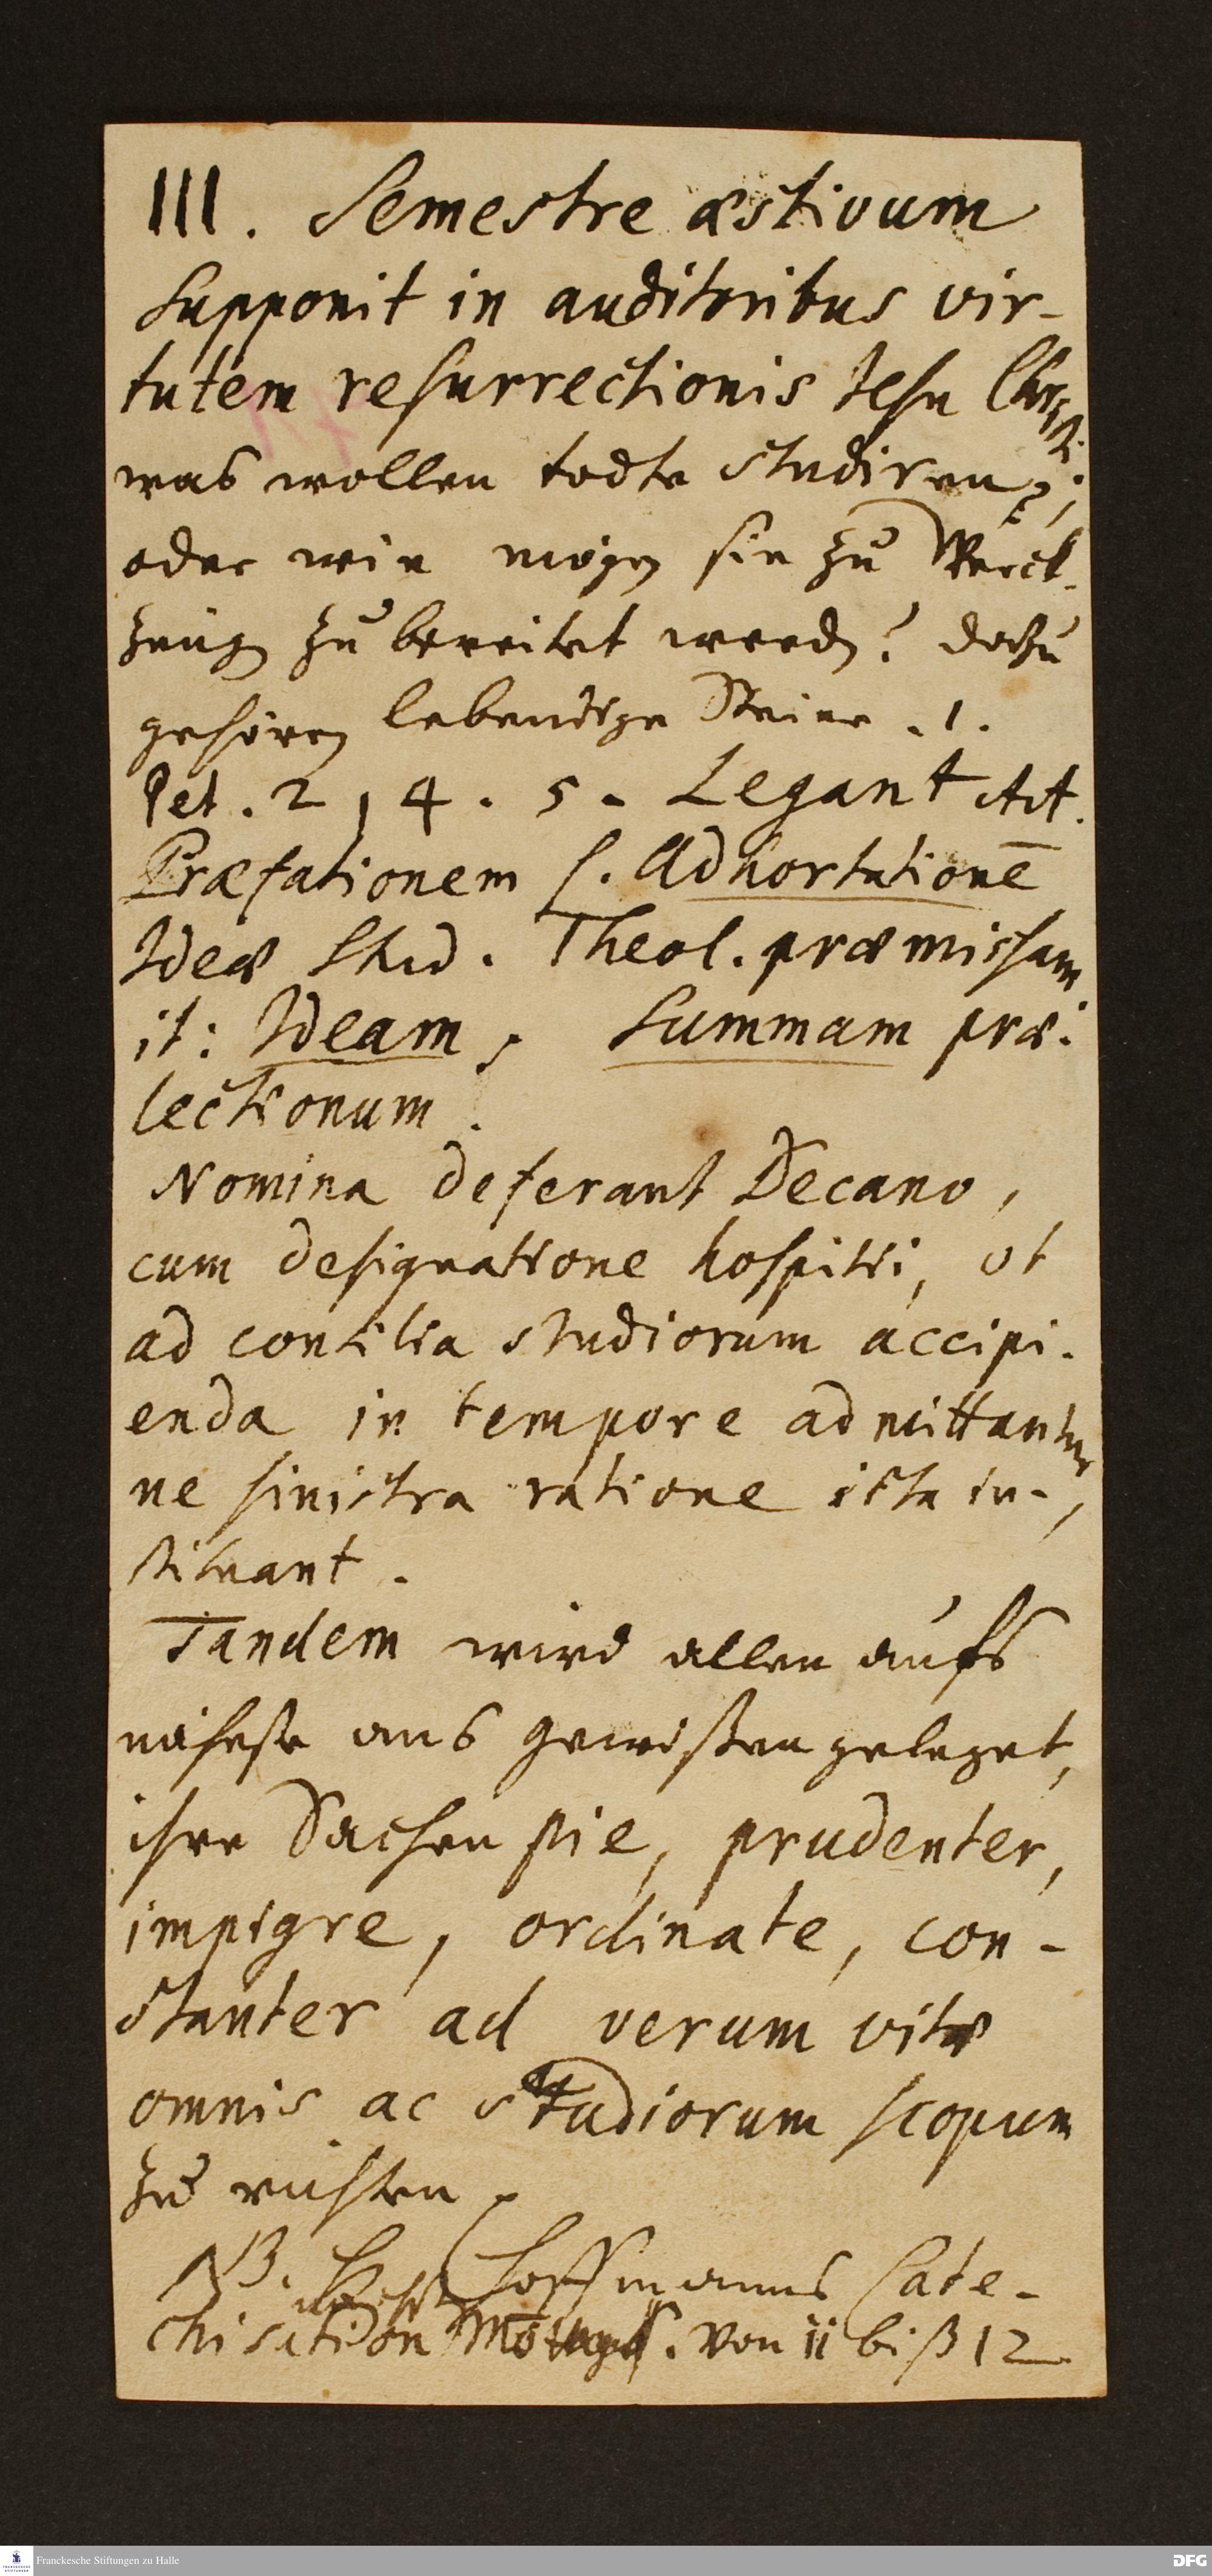 III. Semestre æstivum
supponit in auditoribus vir-
tutem resurrectionis Jesu Christi.
was wollen todte studiren?
oder wie mögen sie zu Werck-
zeüge zu bereitet werden? dazu
gehören lebendige Steine. 1.
Pet. 2, 4. 5. Legant
Præfationem s. Adhortationē
Ideæ Stud. Theol. præmissam
it: Ideam, Summam præ-
lectionum.
Nomina deferant Decano,
cum designatione hospitii, ut
ad consilia studiorum accipi-
enda in tempore admittantur,
ne sinistra ratione ista in-
stituant.
Tandem wird allen aufs
näheste ans Gewißen geleget,
ihre Sachen pie, prudenter,
impigre, ordinate, con-
stanter ad verum vitæ
omnis ac studiorum scopum
zu richten.
NB. Hoffmanns Cate-
chisation . von 11 biß 12
Franckesche Stiftungen zu Halle
DFG